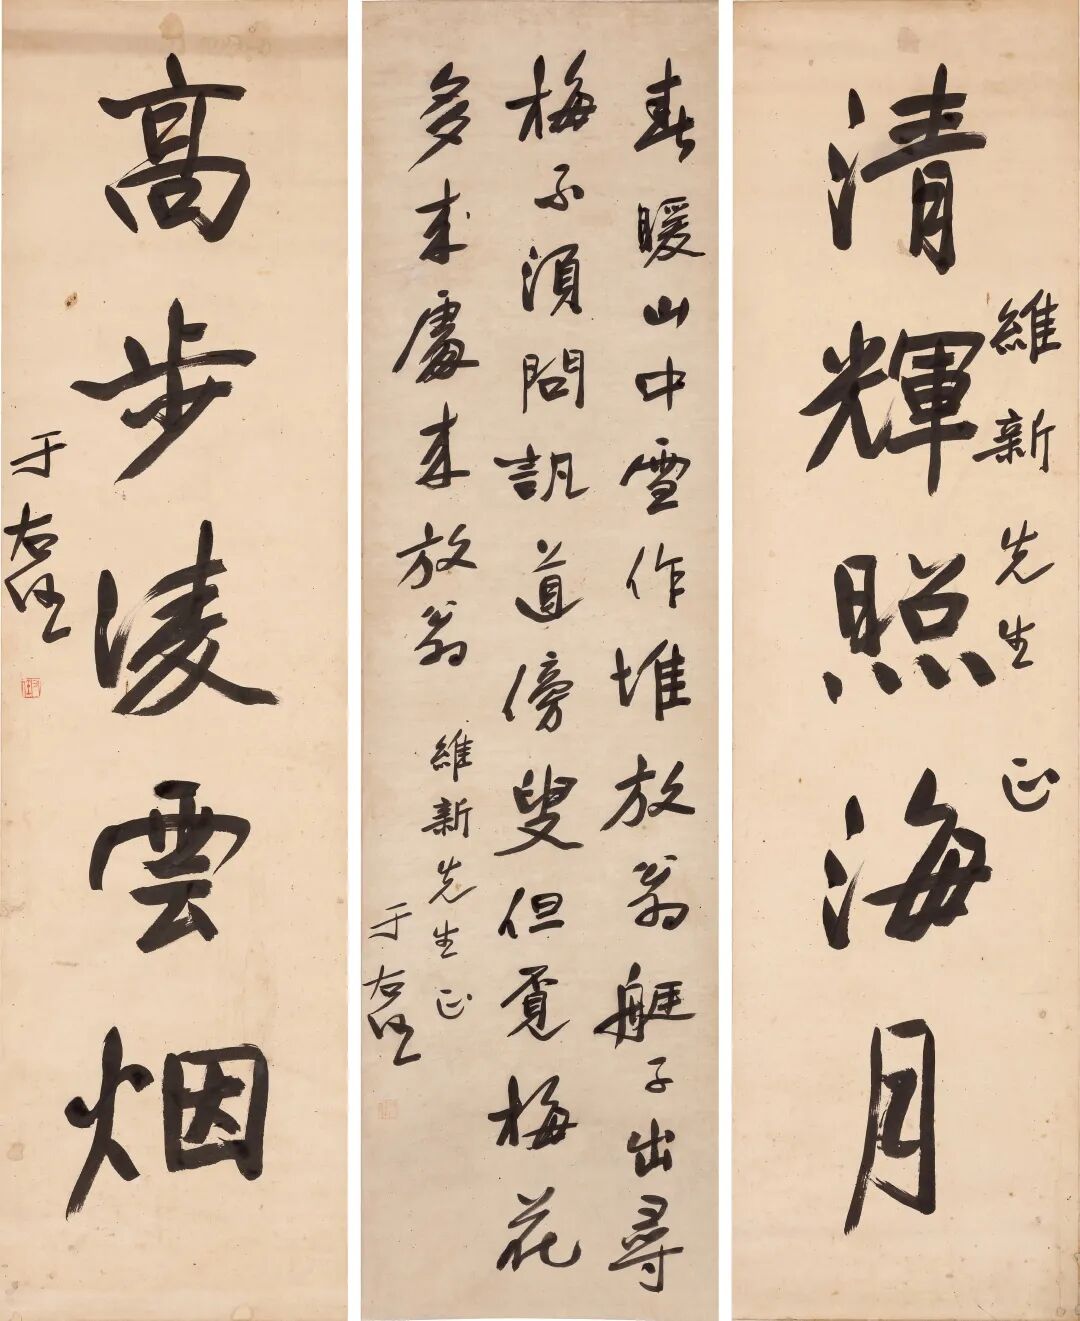 清輝照海月
維新先生正
春暖山中雪作堆放翁艇子出尋
梅不須問訊道傍叟但覓梅花
多来處来放翁
維新先生正
于右任
高步淩雲烟
于右任